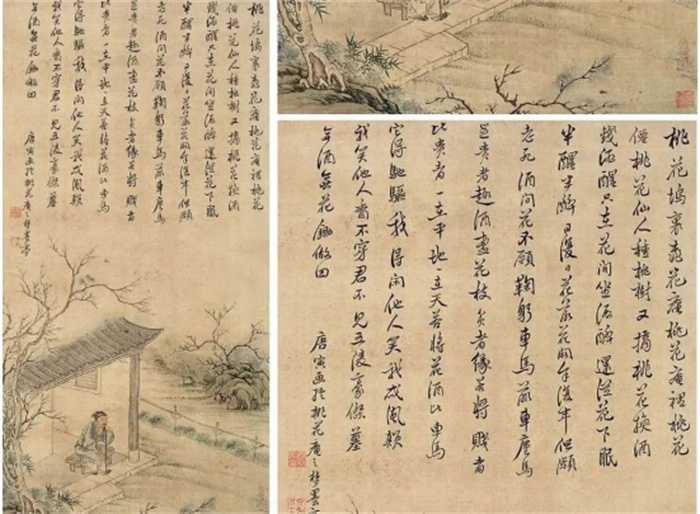 桃花塢裏桃花庵桃花庵裡桃花
僊桃花仙人種桃樹又摘桃花換酒
錢酒醒只在花間坐酒醉還從花下眠
半醒半醉日復日花落花開年復年但願
老死酒間花不願鞠躬車馬前車塵馬
足貴者趣酒盞花枝貧者緣若將賤者
比貴者一在平地一在天若將花酒比車馬
它得驅馳我得閑他人笑我忒風顛
我笑他人看不穿君不見五陵豪傑墓
無酒無花鋤做田
唐寅画於桃花庵之夢墨亭
桃花塢裏桃花庵桃花庵裡桃花
僊桃花仙人種桃樹又摘桃花換酒
錢酒醒只在花間坐酒醉還從花下眠
半醒半醉日復日花落花開年復年但願
老死酒間花不願鞠躬車馬前車塵馬
足貴者趣酒盞花枝貧者緣若將賤者
比貴者一在平地一在天若將花酒比車馬
它得驅馳我得閑他人笑我忒風顛
我笑他人看不穿君不見五陵豪傑墓
無酒無花鋤做田
唐寅画於桃花庵之夢墨